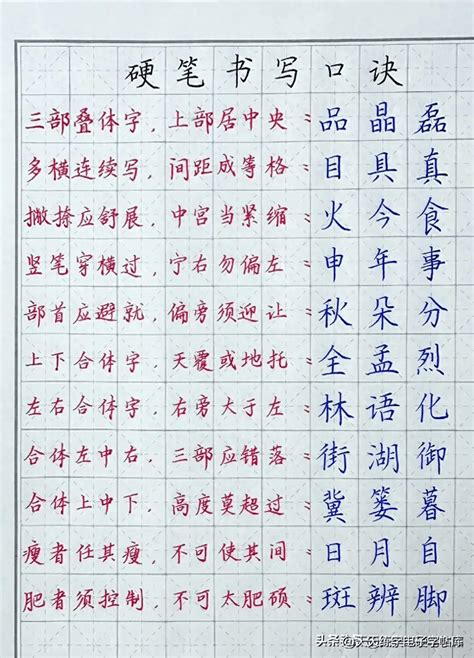 硬笔书写口诀
三部叠体字，上部居中央：品晶磊
多横连续写，间距成等格：目具真
撇捺应舒展，中宫当紧缩：火今食
竖笔穿横过，宁右勿偏左：申年事
部首应避就，偏旁须迎让：秋朵分
上下合体字，天覆或地托：全孟烈
左右合体字，右旁大于左：林语化
合体左中右，三部应错落：街湖御
合体上中下，高度莫超过：冀篓暮
瘦者任其瘦，不可使其间：日月自
肥者须控制，不可太肥硕：斑辨脚
头条@天天练字电子字帖库